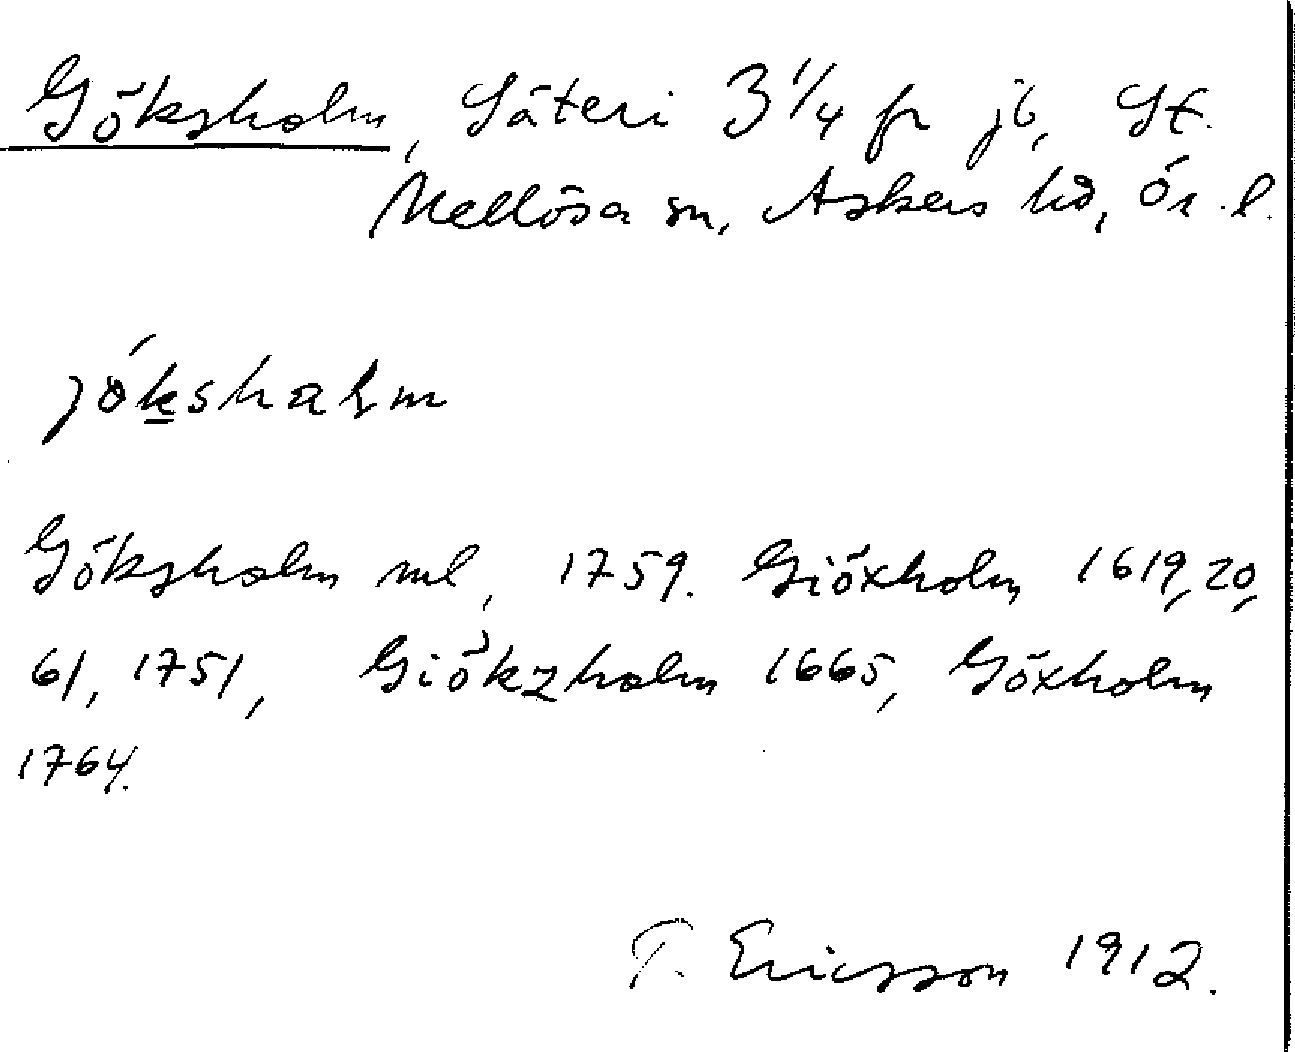 Göksholm, Säteri 3 1/4 fr jb, St.
Mellösa sn, Askers hd, Ör. l.
jö́ksholm
Göksholm ml, 1759. Giöxholm 1619, 20,
61, 1751, Giökzholm 1665, Göxholm
1764.
T. Ericsson 1912.